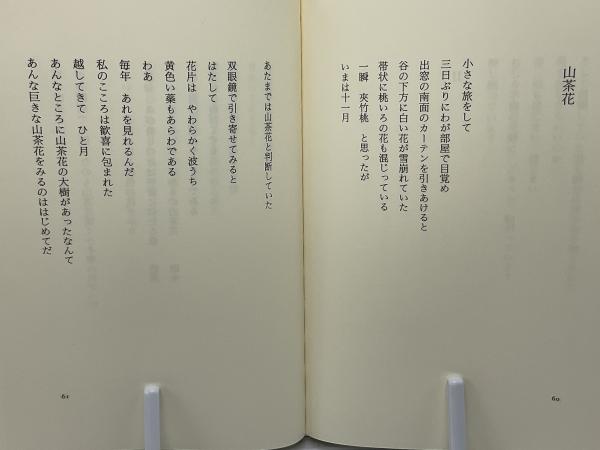 山茶花
小さな旅をして
三日ぶりにわが部屋で目覚め
出窓の南面のカーテンを引きあけると
谷の下方に白い花が雪崩れていた
帯状に桃いろの花も混じっている
一瞬　夾竹桃　と思ったが
いまは十一月
60
あたまでは山茶花と判断していた
双眼鏡で引き寄せてみると
はたして
花片は　やわらかく波うち
黄色い蘂もあらわである
わあ
毎年　あれを見れるんだ
私のこころは歓喜に包まれた
越してきて　ひと月
あんなところに山茶花の大樹があったなんて
あんな巨きな山茶花をみるのははじめてだ
61